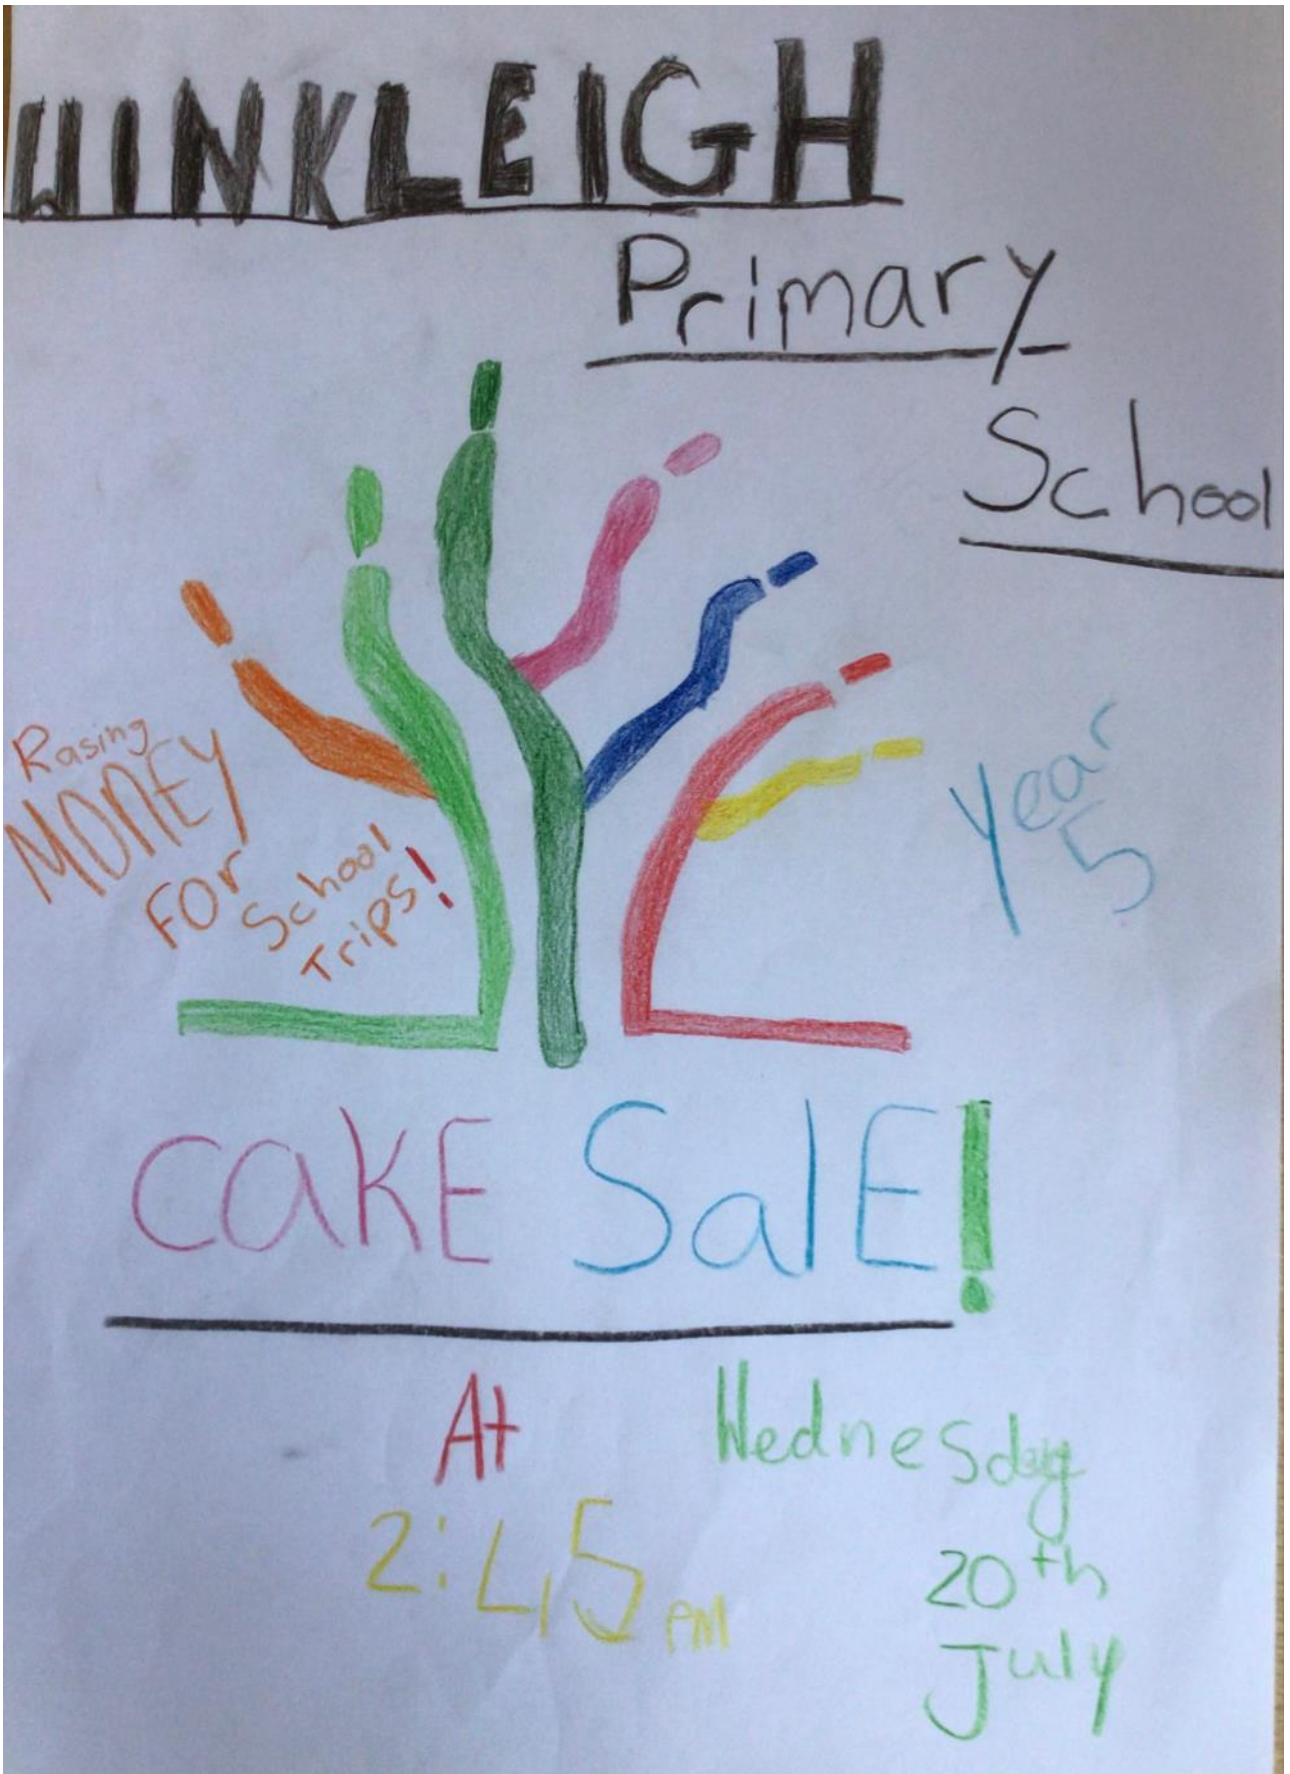 WINKLEIGH
Primary
School
Rasing
MONEY
FOr
School
Trips!
Year
5
CaKE SalE!
At
2:45 PM
Wednesday
20th
July